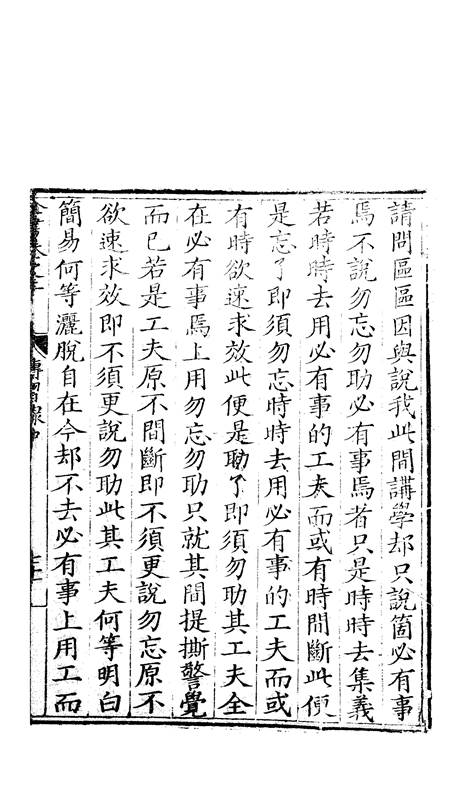 請問區區因與說我此間講學却只說箇必有事
焉不說勿忘勿助必有事焉者只是時時去集義
若時時去用必有事的工夫而或有時間斷此便
是忘了即須勿忘時時去用必有事的工夫而或
有時欲速求效此便是助了即須勿助其工夫全
在必有事焉上用勿忘勿助只就其間提撕警覺
而已若是工夫原不間斷即不須更說勿忘原不
欲速求效即不須更說勿助此其工夫何等明白
簡易何等灑脫自在今却不去必有事上用工而
傳習錄中